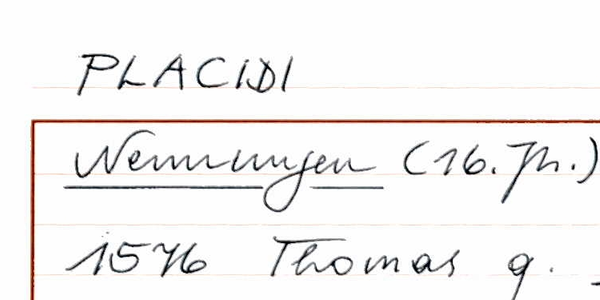 PLACIDI
Nennungen (16. Jh.)
1576 Thomas q.